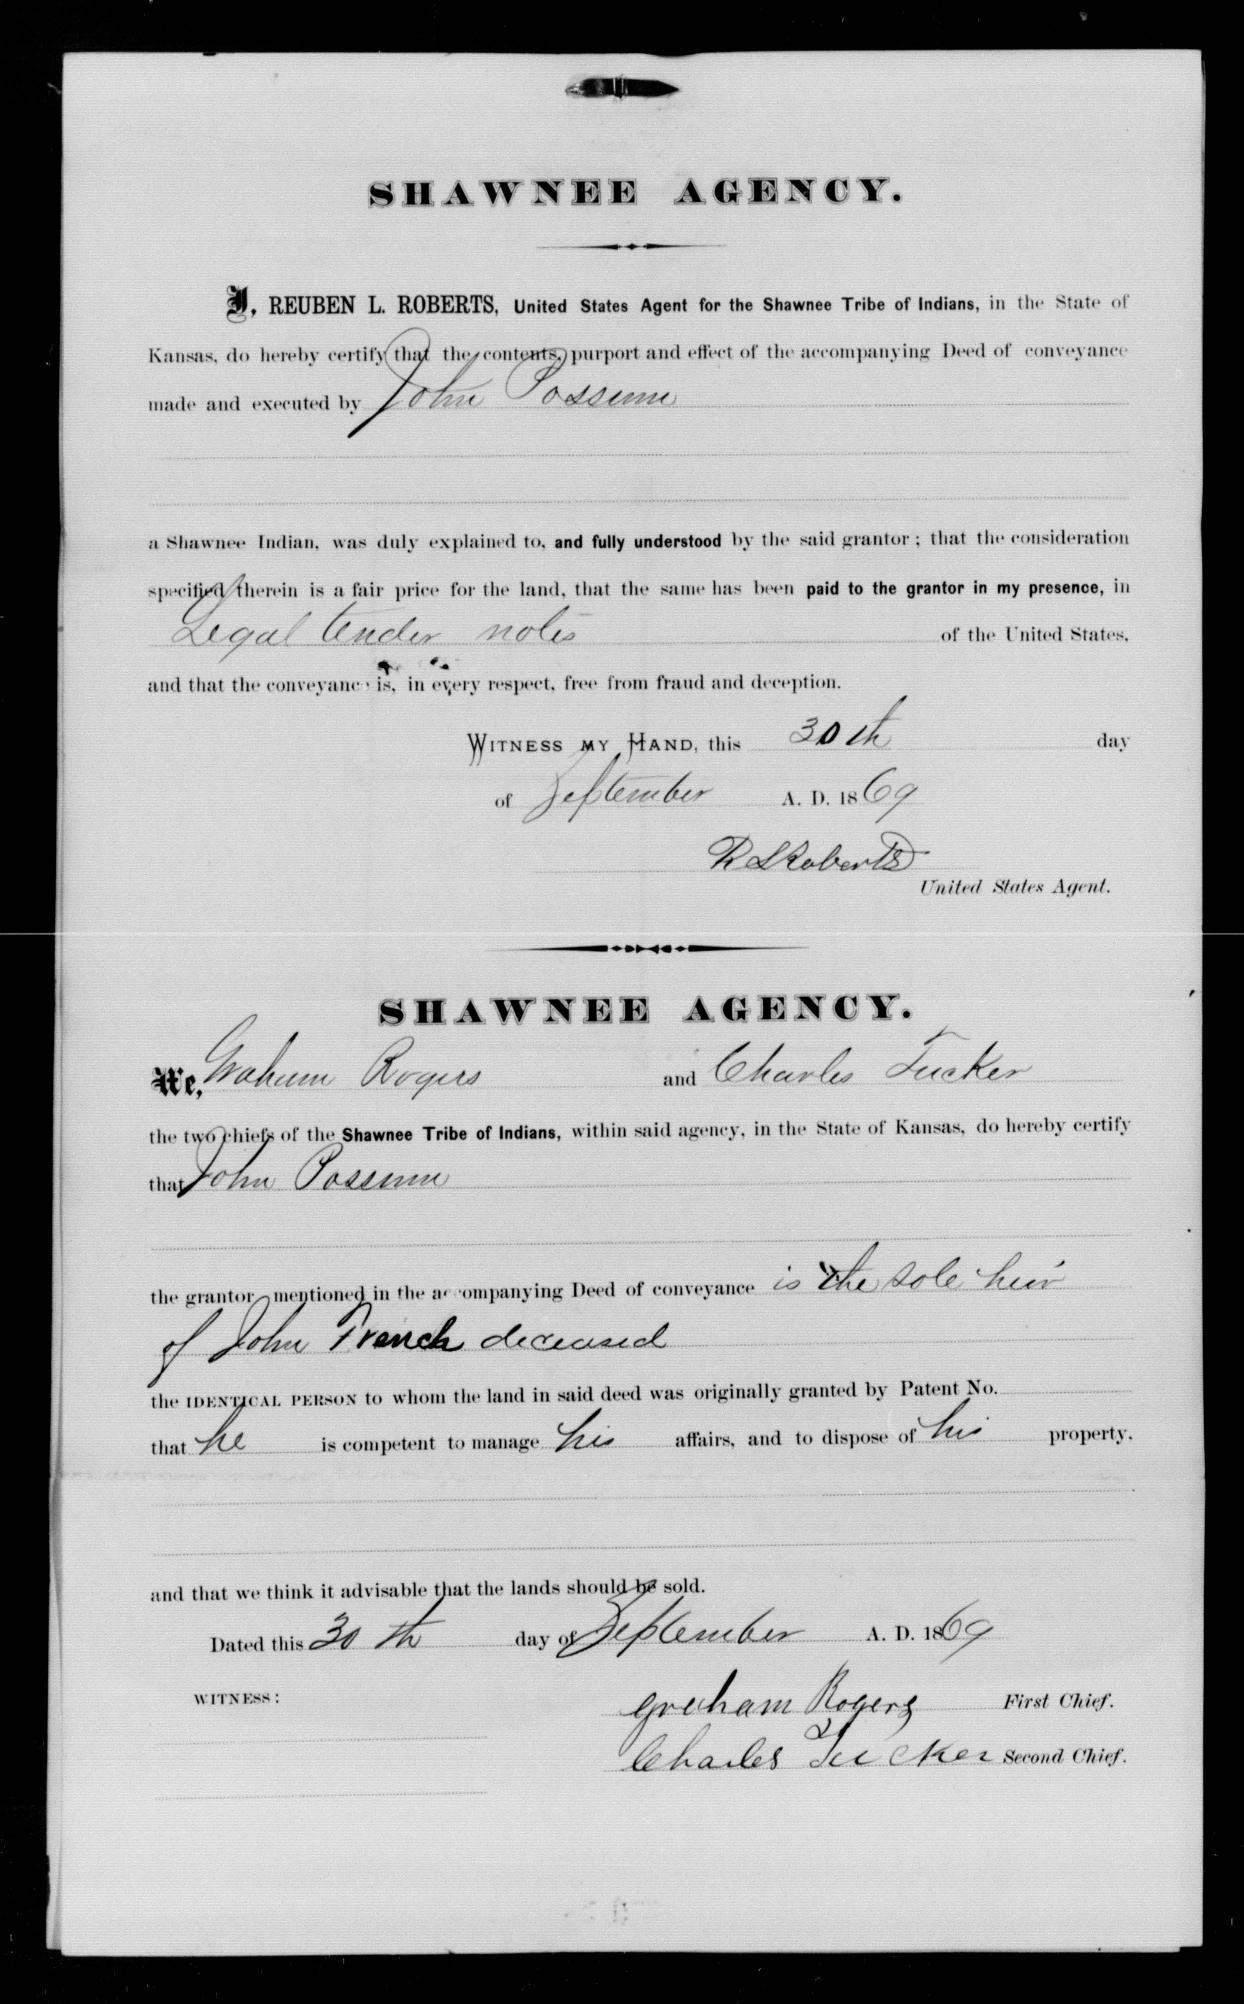 SHAWNEE AGENCY.
I, REUBEN L. ROBERTS, United States Agent for the Shawnee Tribe of Indians, in the State of
Kansas, do hereby certify that the contents, purport and effect of the accompanying Deed of conveyance
made and executed by John Possum
a Shawnee Indian, was duly explained to, and fully understood by the said grantor; that the consideration
specified therein is a fair price for the land, that the same has been paid to the grantor in my presence, in
Legal tender notes of the United States,
and that the conveyance is, in every respect, free from fraud and deception.
WITNESS MY HAND, this 30th day
of September A. D. 1869
R L Roberts
United States Agent.
SHAWNEE AGENCY.
We, Graham Rogers and Charles Tucker
the two chiefs of the Shawnee Tribe of Indians, within said agency, in the State of Kansas, do hereby certify
that John Possum
the grantor mentioned in the accompanying Deed of conveyance is the sole heir
of John French deceased
the IDENTICAL PERSON to whom the land in said deed was originally granted by Patent No.
that he is competent to manage his affairs, and to dispose of his property.
and that we think it advisable that the lands should be sold.
Dated this 30th day of September A. D. 1869
WITNESS:
Greham Rogers First Chief.
Charles Tucker Second Chief.